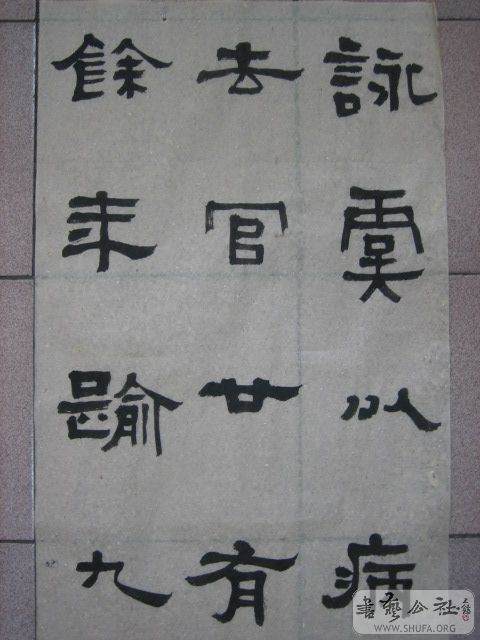 詠虞以病
去官廿有
餘年踰九
書藝公社
WWW.SHUFA.ORG